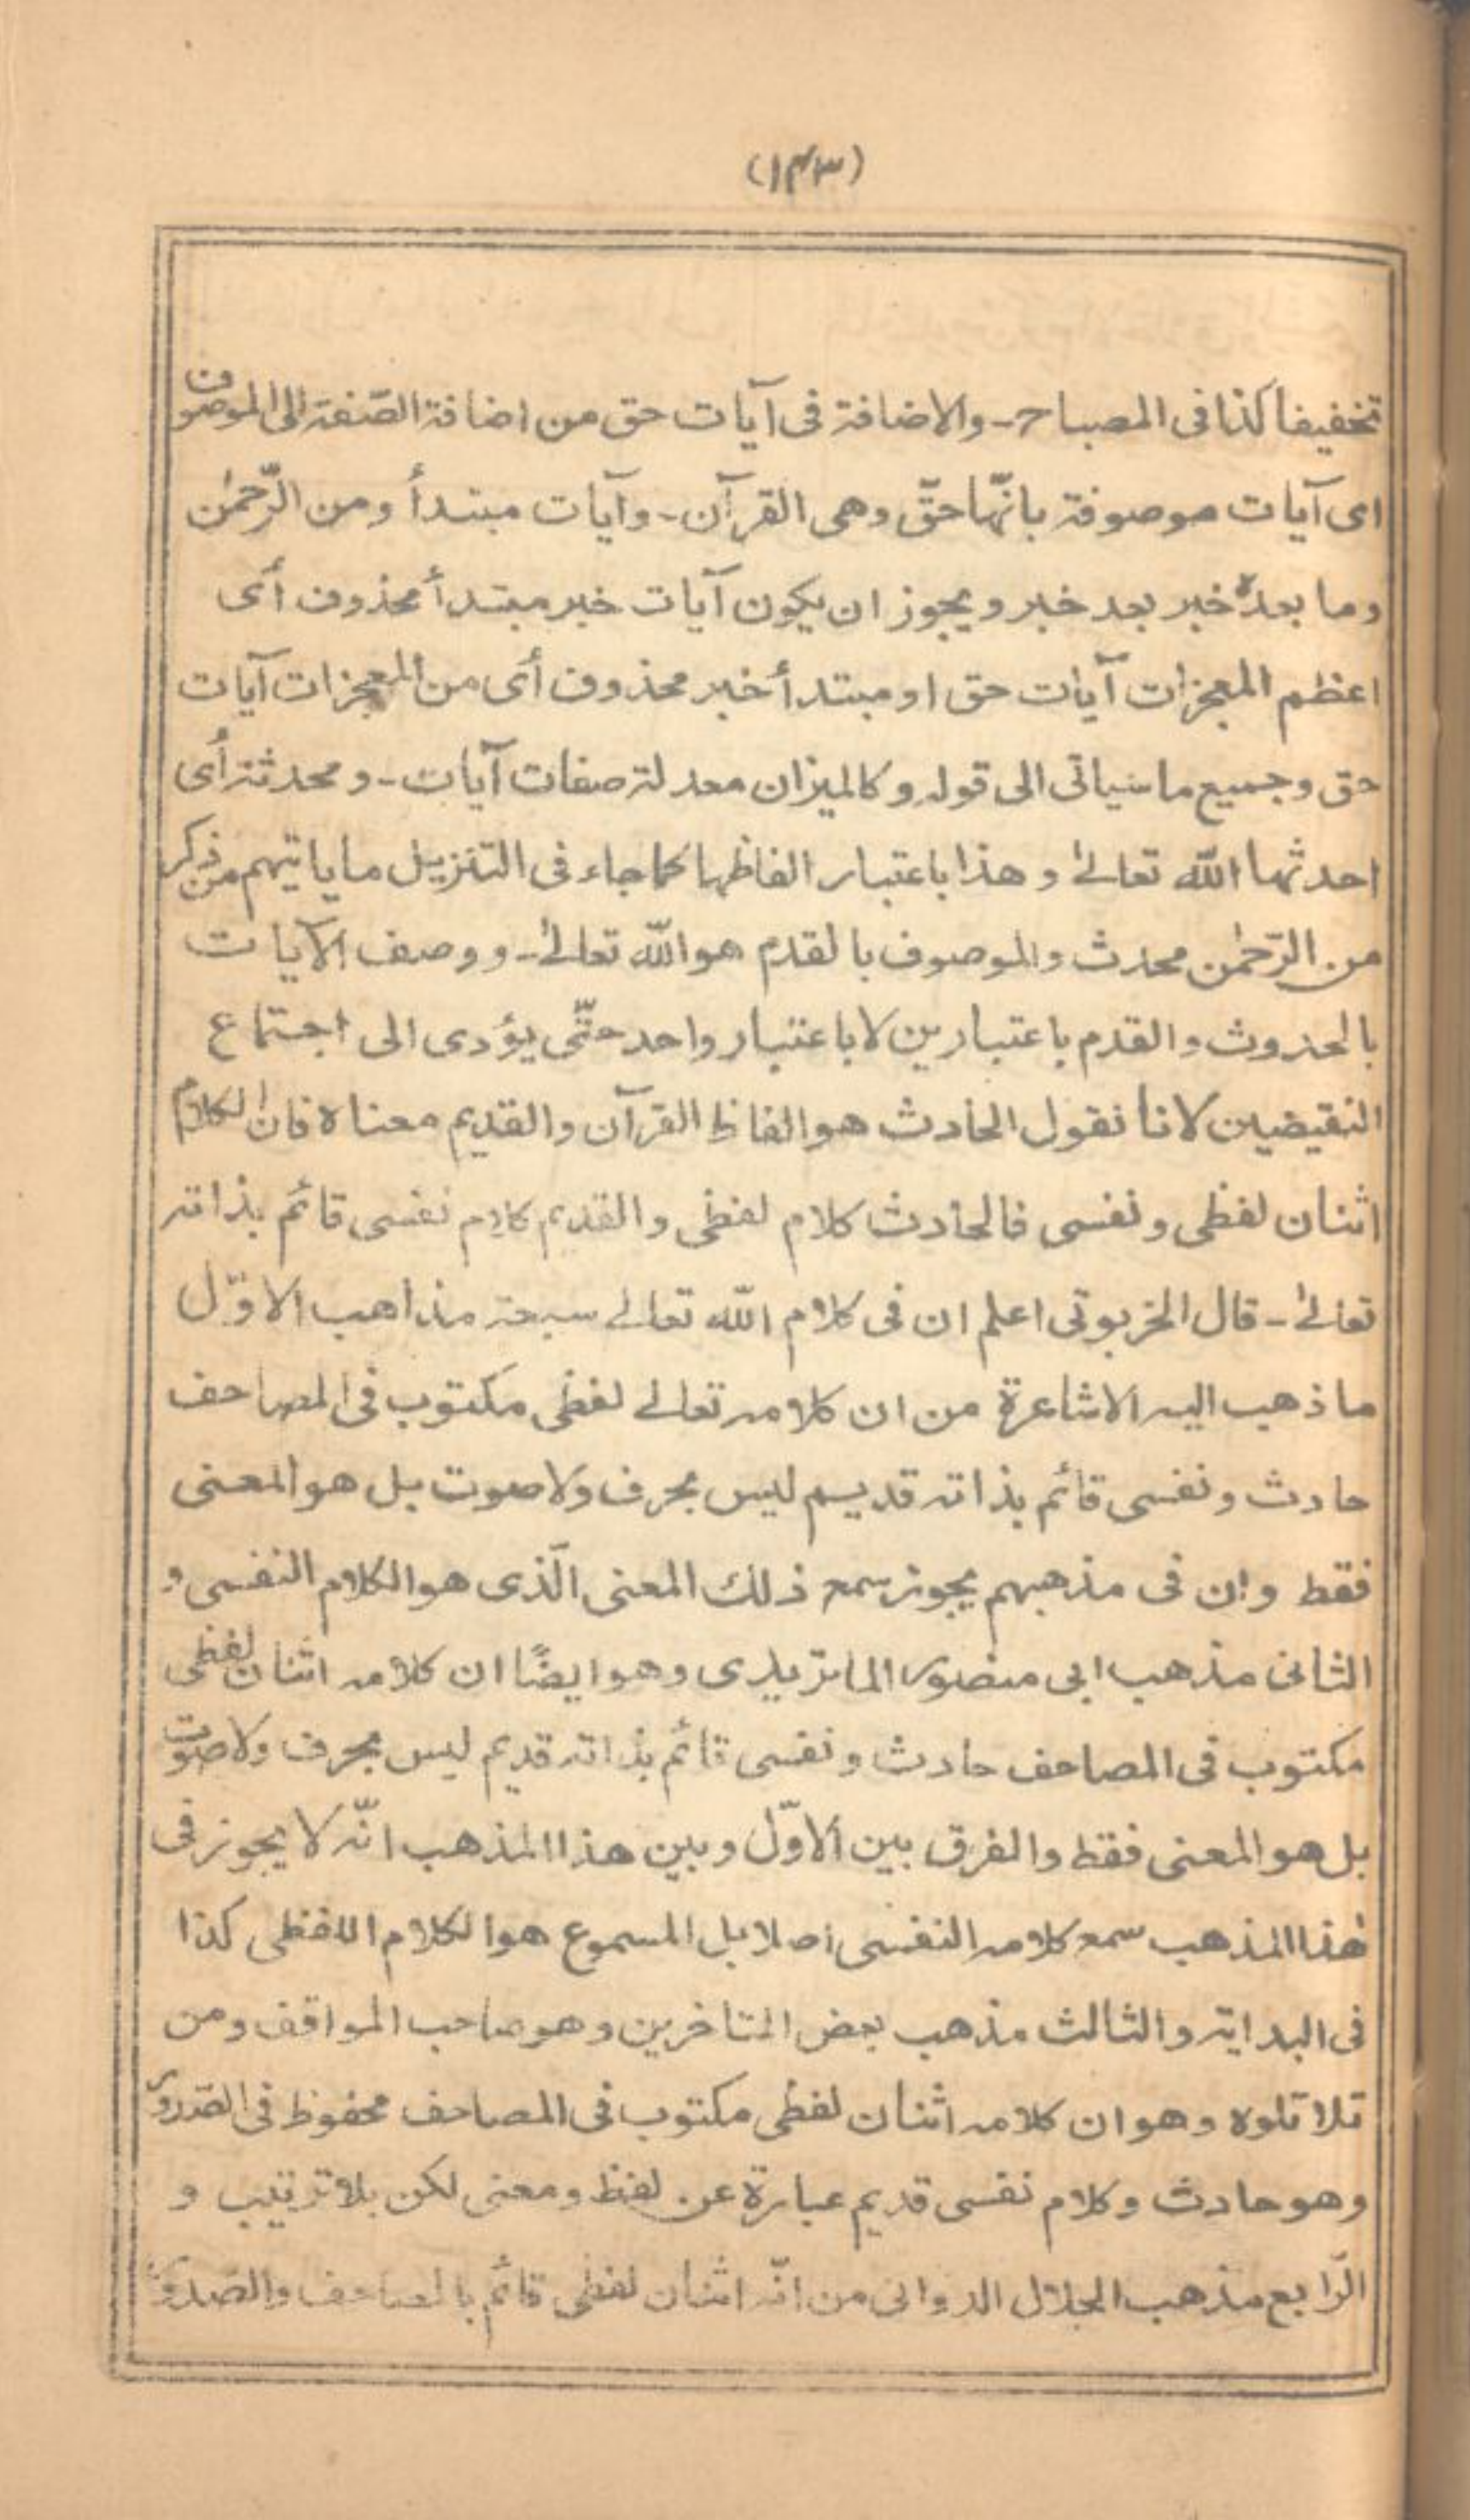 (١٤٣)
تخفيفا كذا فى المصباح - والاضافة فى آيات حق من اضافة الصّفة الى الموصوف
اى آيات موصوفة بانّها حقّ وهى القرآن - وآيات مبتدأ ومن الرّحمٰن
وما بعدهٗ خبر بعد خبر ويجوز ان يكون آيات خبر مبتدأ محذوف أى
اعظم المعجزات آيات حق او مبتدأ خبر محذوف أى من المعجزات آيات
حق وجميع ما سياتى الى قوله وكالميزان معدلة صفات آيات - ومحدثة أى
احدثها اللّٰه تعالىٰ وهذا باعتبار الفاظها كما جاء فى التنزيل ما ياتيهم من ذكر
من الرّحمٰن محدث والموصوف بالقدم هو اللّٰه تعالىٰ - ووصف الآيات
بالحدوث والقدم باعتبارين لا باعتبار واحد حتّٰى يؤدى الى اجتماع
النقيضين لانا نقول الحادث هو الفاظ القرآن والقديم معناه فان الكلام
اثنان لفظى ونفسى فالحادث كلام لفظى والقديم كلام نفسى قائم بذاته
تعالىٰ - قال الخربوتى اعلم ان فى كلام اللّٰه تعالىٰ سبعة مذاهب الاوّل
ما ذهب اليه الاشاعرة من ان كلامه تعالىٰ لفظى مكتوب فى المصاحف
حادث ونفسى قائم بذاته قديم ليس بحرف ولا صوت بل هو المعنى
فقط وان فى مذهبهم يجوز سمع ذلك المعنى الّذى هو الكلام النفسى و
الثانى مذهب ابى منصور الماتريدى وهو ايضًا ان كلامه اثنان لفظى
مكتوب فى المصاحف حادث ونفسى قائم بذاته قديم ليس بحرف ولا صوت
بل هو المعنى فقط والفرق بين الاوّل وبين هذا المذهب انّه لا يجوز فى
هٰذا المذهب سمع كلامه النفسى اصلا بل المسموع هو الكلام اللفظى كذا
فى البداية والثالث مذهب بعض المتاخرين وهو صاحب المواقف ومن
تلا تلوه وهو ان كلامه اثنان لفظى مكتوب فى المصاحف محفوظ فى الصّدور
وهو حادث وكلام نفسى قديم عبارة عن لفظ ومعنى لكن بلا ترتيب و
الرّابع مذهب الجلال الدوانى من انّه اثنان لفظى قائم بالمصاحف والصدور